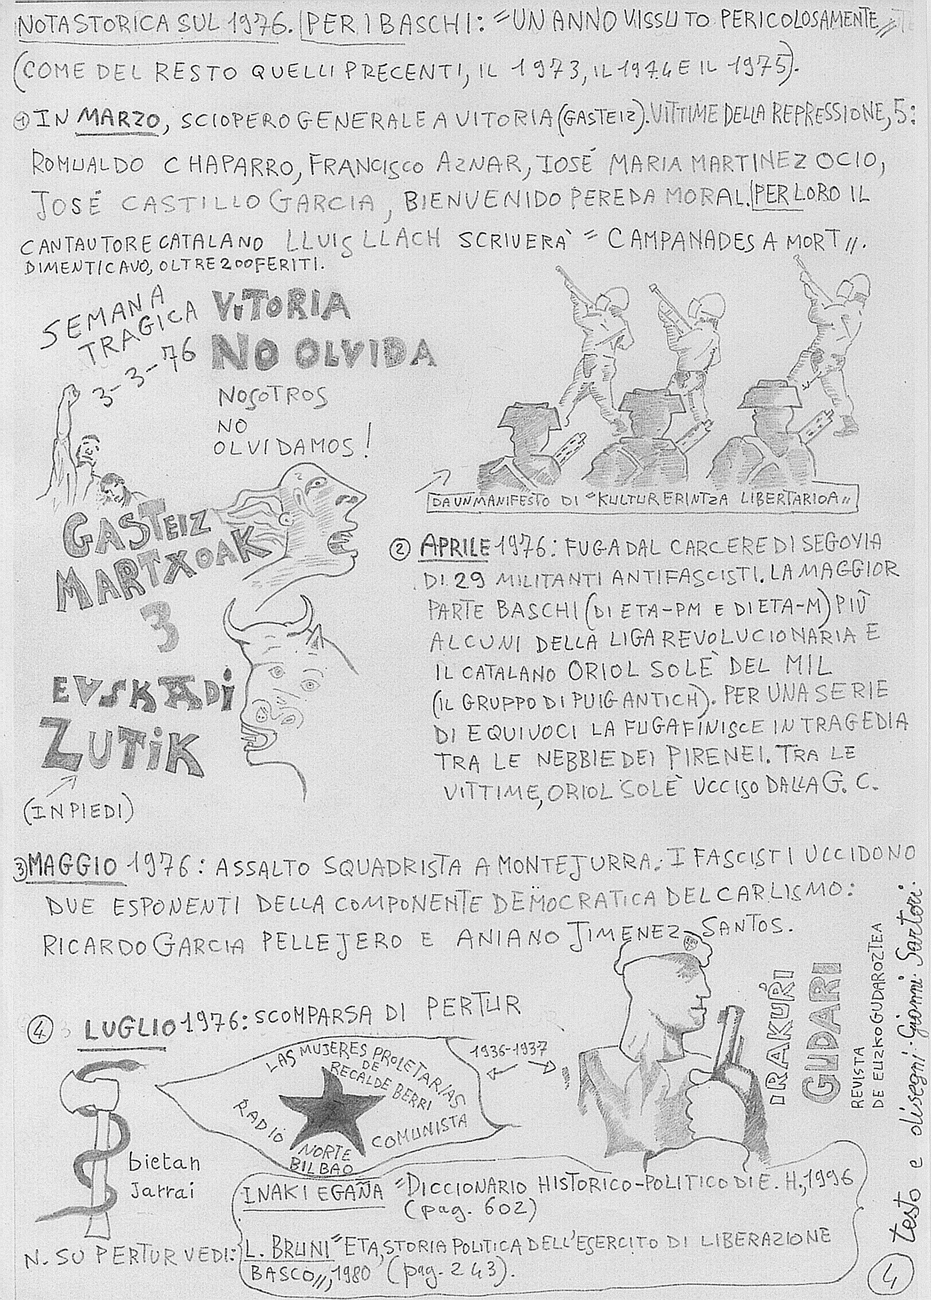 NOTA STORICA SUL 1976. PER I BASCHI: "UN ANNO VISSUTO PERICOLOSAMENTE"
(COME DEL RESTO QUELLI PRECENTI, IL 1973, IL 1974 E IL 1975).
① IN MARZO, SCIOPERO GENERALE A VITORIA (GASTEIZ). VITTIME DELLA REPRESSIONE, 5:
ROMUALDO CHAPARRO, FRANCISCO AZNAR, JOSÉ MARIA MARTINEZ OCIO,
JOSÉ CASTILLO GARCIA, BIENVENIDO PEREDA MORAL. PER LORO IL
CANTAUTORE CATALANO LLUIS LLACH SCRIVERÀ "CAMPANADES A MORT".
DIMENTICAVO, OLTRE 200 FERITI.
SEMANA
TRAGICA
3-3-76
VITORIA
NO OLVIDA
NOSOTROS
NO
OLVIDAMOS!
GASTEIZ
MARTXOAK
3
EUSKADI
ZUTIK
(IN PIEDI)
DA UN MANIFESTO DI "KULTUR ERINTZA LIBERTARIOA"
② APRILE 1976: FUGA DAL CARCERE DI SEGOVIA
DI 29 MILITANTI ANTIFASCISTI. LA MAGGIOR
PARTE BASCHI (DI ETA-PM E DI ETA-M) PIÙ
ALCUNI DELLA LIGA REVOLUCIONARIA E
IL CATALANO ORIOL SOLÈ DEL MIL
(IL GRUPPO DI PUIG ANTICH). PER UNA SERIE
DI EQUIVOCI LA FUGA FINISCE IN TRAGEDIA
TRA LE NEBBIE DEI PIRENEI. TRA LE
VITTIME, ORIOL SOLÈ UCCISO DALLA G. C.
③ MAGGIO 1976: ASSALTO SQUADRISTA A MONTEJURRA: I FASCISTI UCCIDONO
DUE ESPONENTI DELLA COMPONENTE DEMOCRATICA DEL CARLISMO:
RICARDO GARCIA PELLEJERO E ANIANO JIMENEZ SANTOS.
④ LUGLIO 1976: SCOMPARSA DI PERTUR
bietan
Jarrai
LAS MUJERES PROLETARIAS
DE
RECALDE BERRI
RADIO COMUNISTA
NORTE
BILBAO
1936-1937
IRAKURŔI
GUDARI
REVISTA
DE EUZKO GUDAROZTEA
testo e disegni: Gianni Sartori.
N. SU PERTUR VEDI:
INAKI EGAÑA "DICCIONARIO HISTORICO-POLITICO DI E. H., 1996
(pag. 602)
L. BRUNI "ETA, STORIA POLITICA DELL'ESERCITO DI LIBERAZIONE
BASCO", 1980 (pag. 243).
4